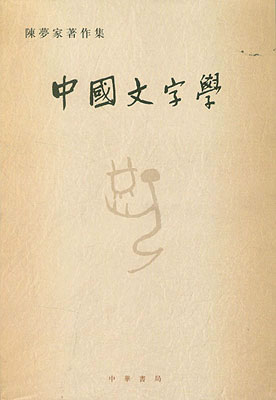 陳夢家著作集
中國文字學
中華書局